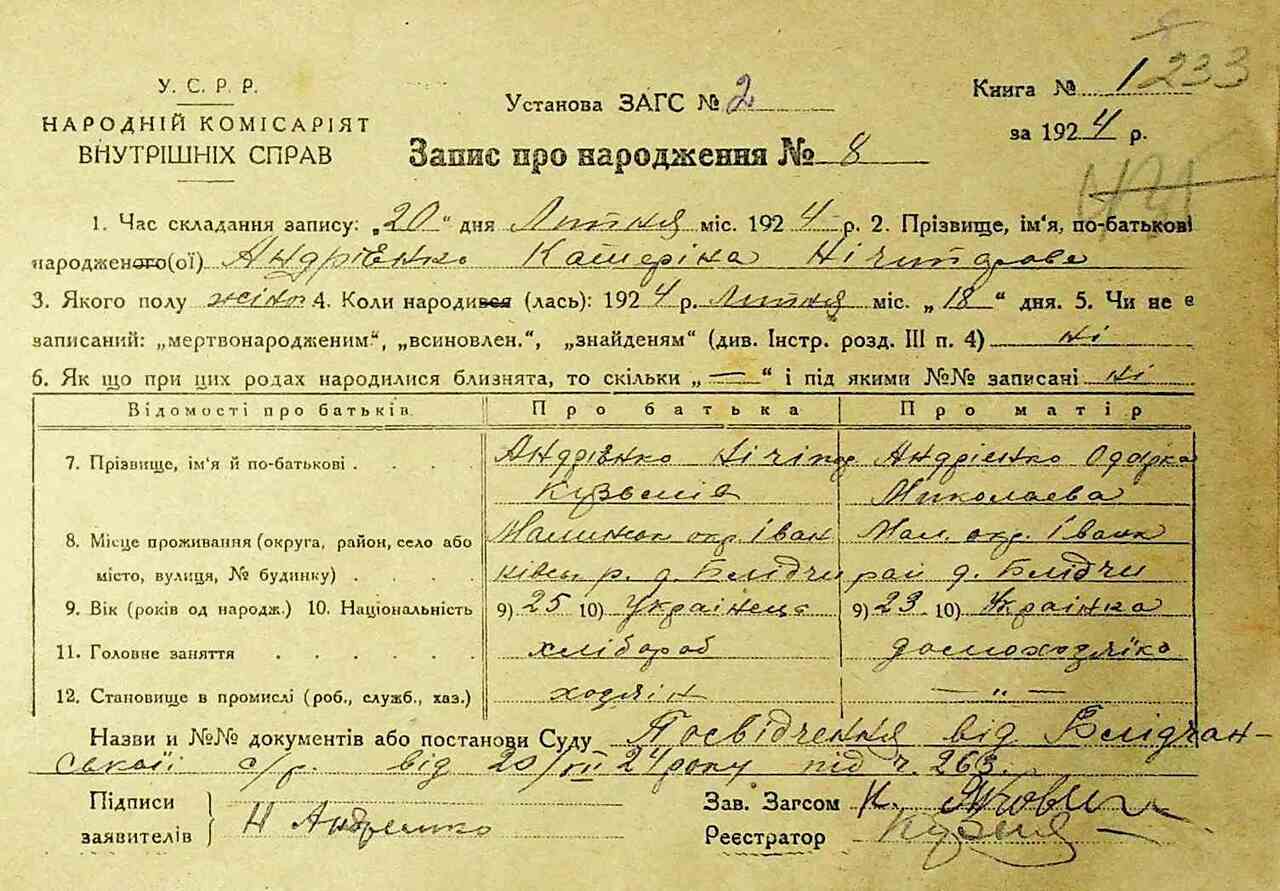 У. С. Р. Р.
НАРОДНІЙ КОМІСАРІЯТ
ВНУТРІШНІХ СПРАВ
Установа ЗАГС № 2
Запис про народження № 8
Книга № 1 233
за 1924 р.
1. Час складання запису: „20“ дня Липня міс. 1924 р. 2. Прізвище, ім‘я, по-батькові
народженого(ої) Андрієнко Катеріна Нічипорова
3. Якого полу жіноч 4. Коли народився (лась): 1924 р. Липня міс. „18“ дня. 5. Чи не є
записаний: „мертвонародженим“, „всиновлен.“, „знайденям“ (див. Інстр. розд. III п. 4) ні
6. Як що при цих родах народилися близнята, то скільки „—“ і під якими №№ записані ні
Відомості про батьків Про батька Про матір
7. Прізвище, ім‘я й по-батькові . . . . Андрієнко Нічіпор Андрієнко Одарка
Кузьмів Миколаева
8. Місце проживання (округа, район, село або Малинськ окр. Іван Мал. окр. Іванк
місто, вулиця, № будинку) . . . . ківськ р. д. Блідчи рай д. Блідчи
9. Вік (років од народж.) 10. Національність 9) 25 10) Українець 9) 23 10) Українка
11. Головне заняття . . . . . . хлібороб домохазяйка
12. Становище в промислі (роб., служб., хаз.) хазяін — „ —
Назви и №№ документів або постанови Суду Посвідчення від Блідчан-
ськоіі с/р. від 20/VII 24 року під ч. 263.
Підписи
заявителів
Н Андриенко
Зав. Загсом
Реєстратор